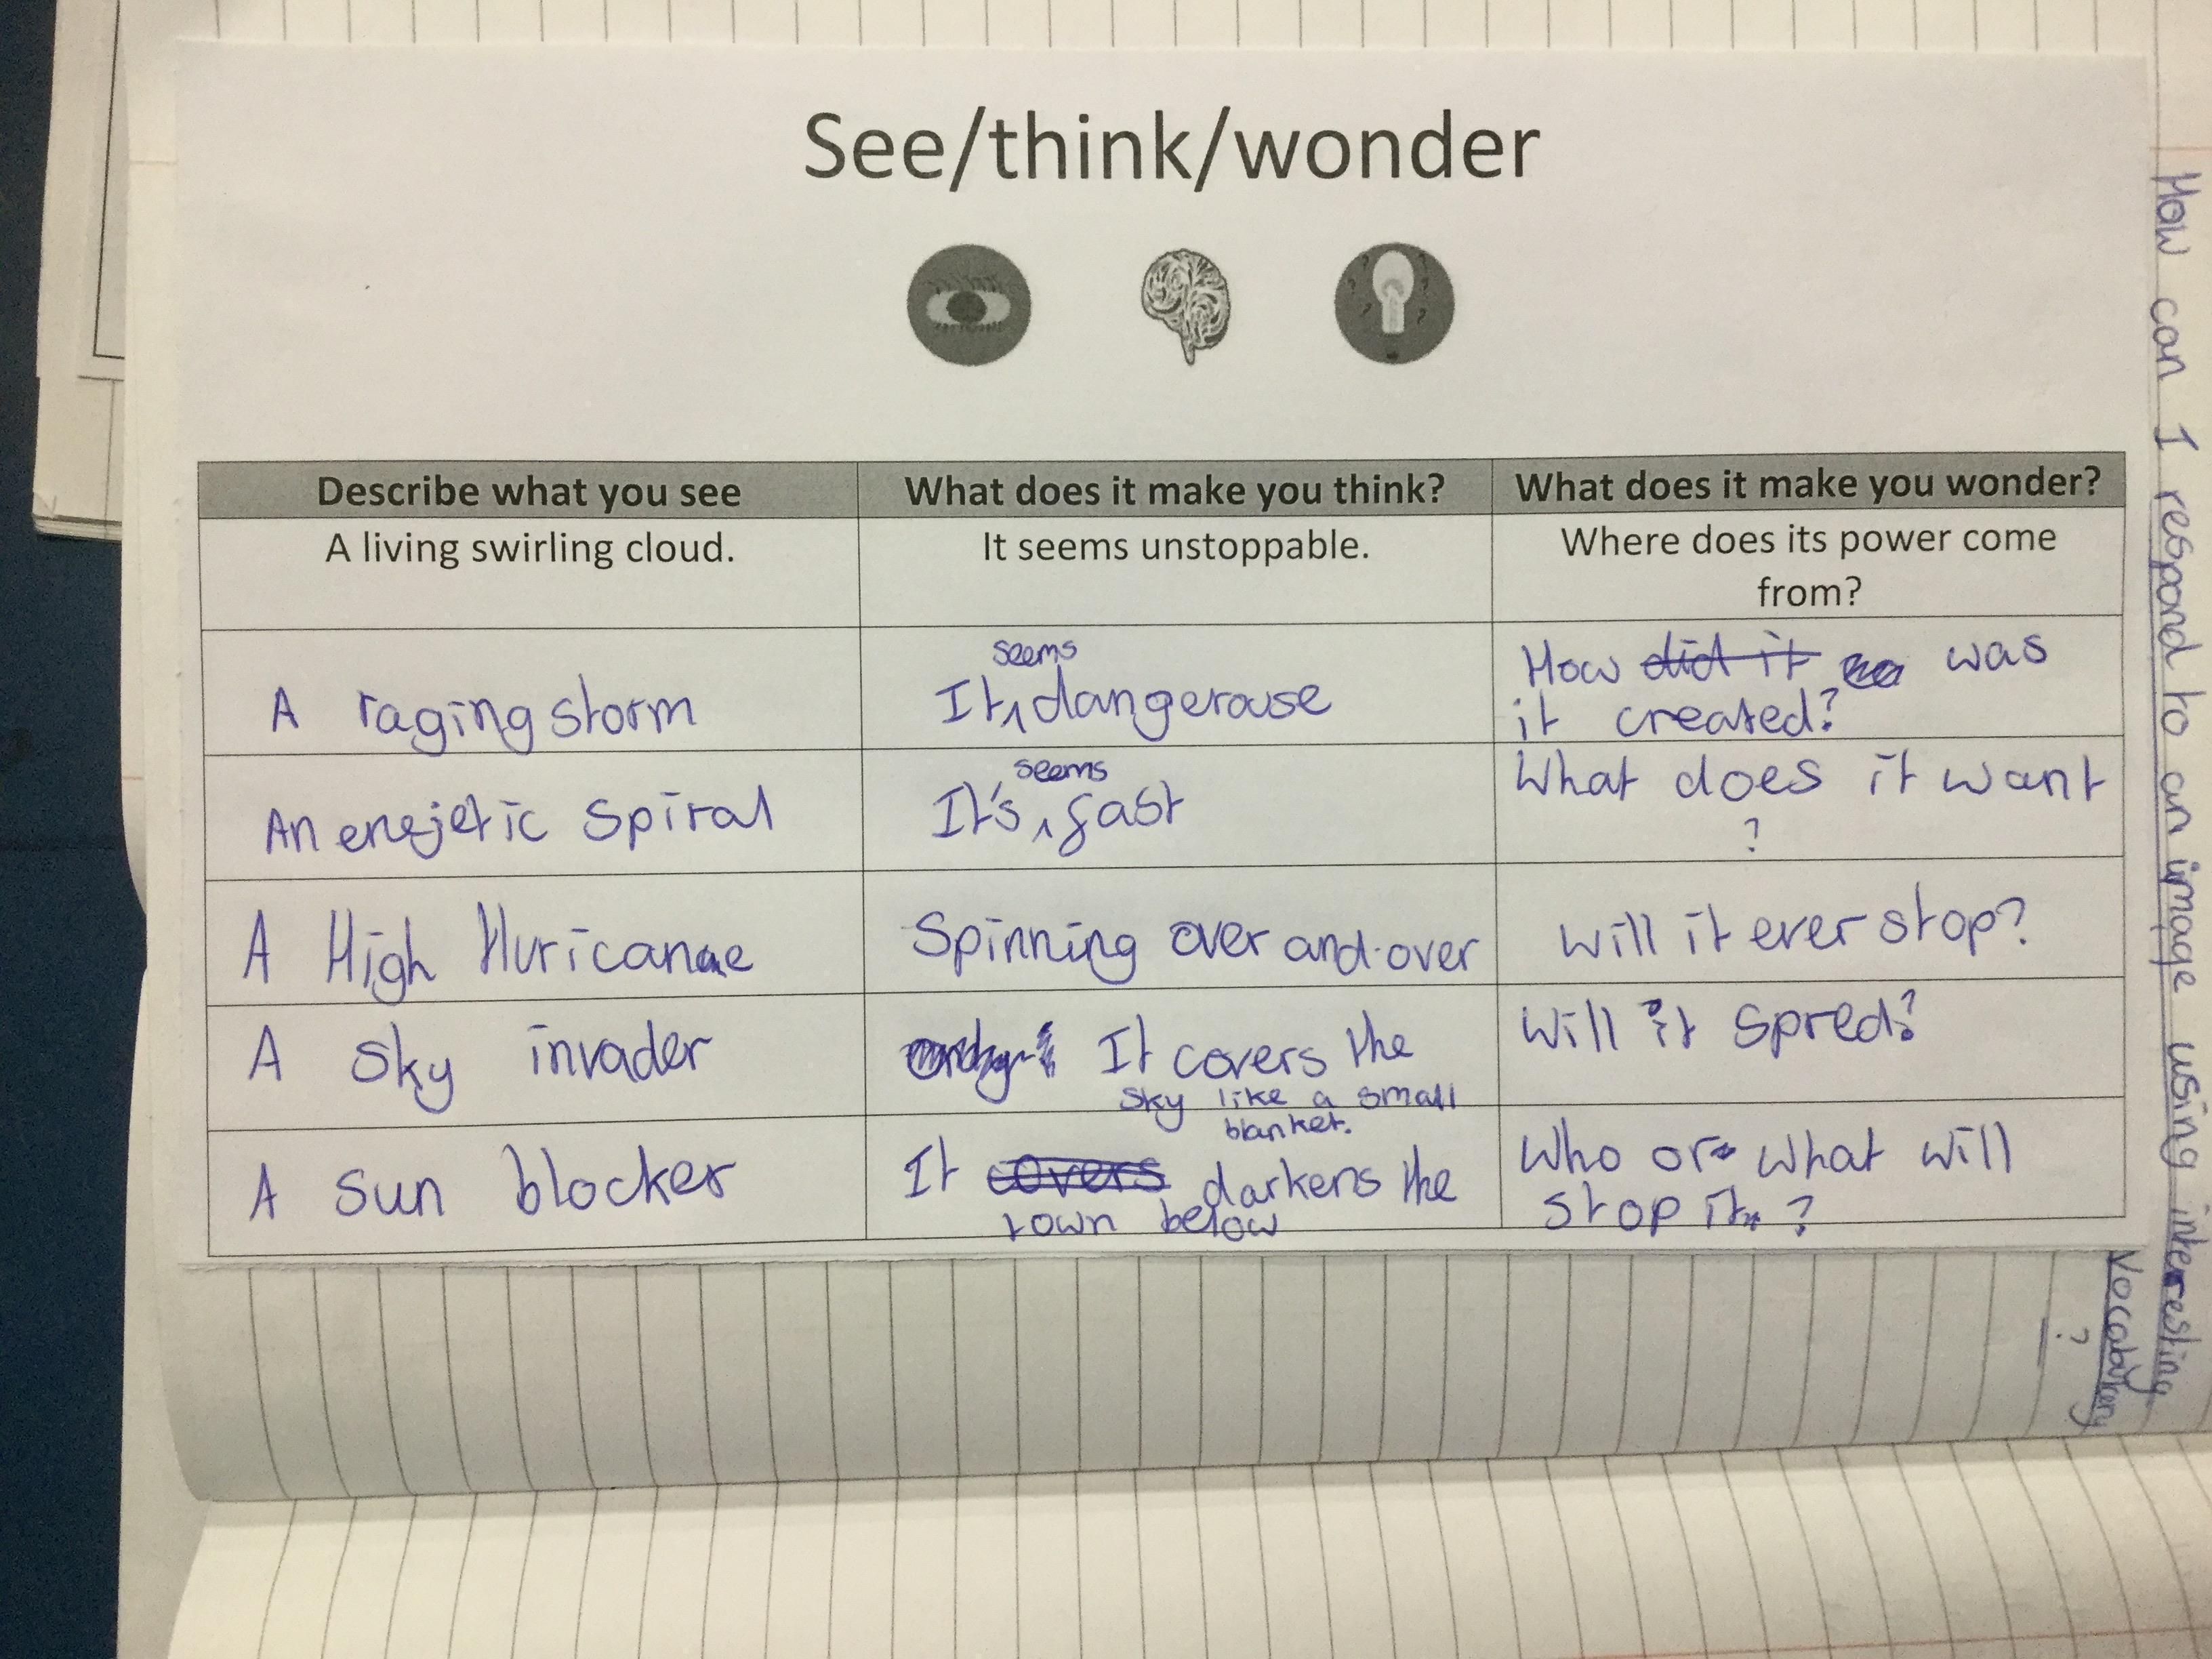 See/think/wonder
Describe what you see
What does it make you think?
What does it make you wonder?
A living swirling cloud.
It seems unstoppable.
Where does its power come
from?
A raging storm
seems
It dangerouse
How did it was
it created?
An enejetic spiral
seems
It's fast
What does it want
?
A High Huricane
Spinning over and over
Will it ever stop?
A sky invader
It covers the
sky like a small
blanket.
Will it spred?
A sun blocker
It covers darkens the
town below
Who or what will
stop it ?
How can I respond to an image using interesting
?